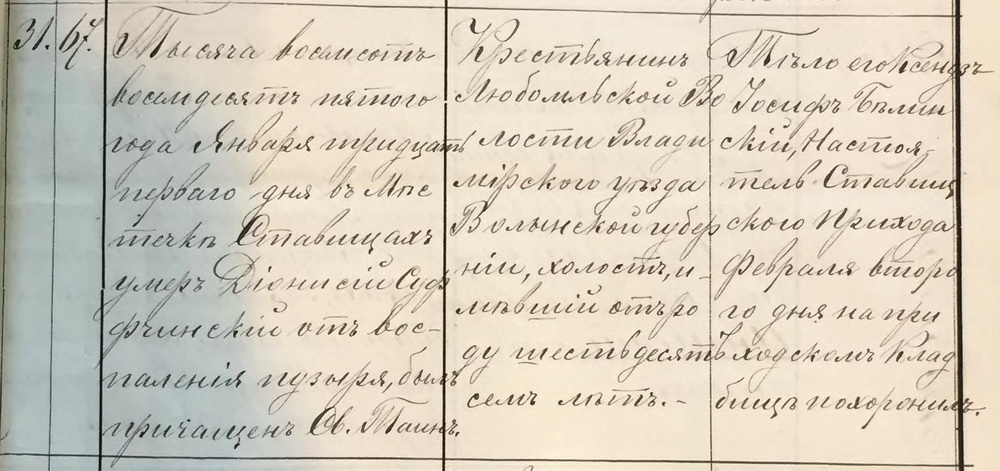 31. 67.
Тысяча восемсотъ
восемдесятъ пятого
года Января тридцать
перваго дня въ Мѣс
течкѣ Ставищахъ
умеръ Діонисій
отъ вос-
паленія пузыря, былъ
причащенъ Св. Таинъ.
Крестьянинъ
Любомльской Во
лости Влади
мірского уѣзда
Волынской губер
ніи, холостъ, и_
мѣвшій отъ ро
ду шестьдесятъ
семъ лѣтъ.-
Тѣло его Ксендзъ
Іосифъ Бѣлин
скій, Настоя_
тель Ставищ
ского Прихода
Февраля второ
го дня на при
ходскомъ Клад
бищѣ похоронилъ.